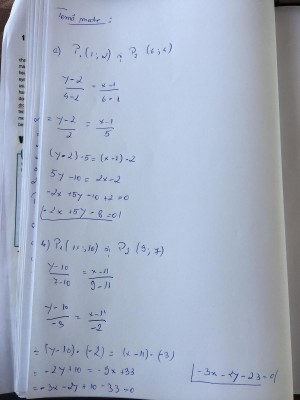 Temă
a) P₁(1,2) și P₂(6,4)
y-2 / 4-2 = x-1 / 6-1
= y-2 / 2 = x-1 / 5
(y-2)·5 = (x-1)·2
5y-10 = 2x-2
-2x+5y-10+2=0
-2x+5y-8=0
P₁(11,10) și P₂(9,7)
y-10 / 7-10 = x-11 / 9-11
y-10 / -3 = x-11 / -2
= (y-10)·(-2) = (x-11)·(-3)
= -2y+10 = -9x+33
= -3x-2y+10-33=0
-3x-2y-23=0